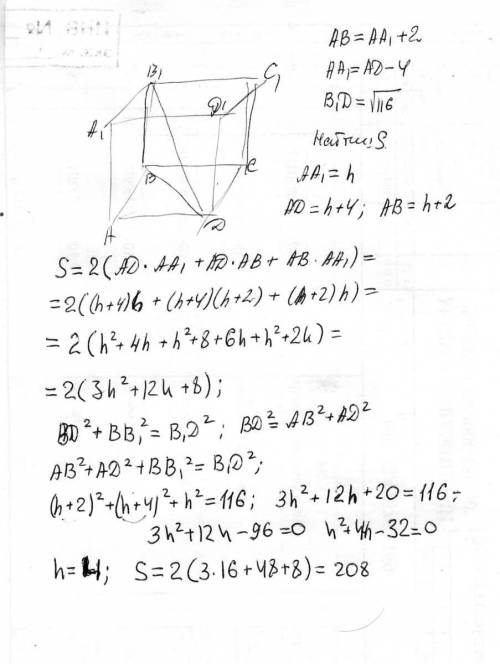 AB = AA₁ + 2
AA₁ = AD − 4
B₁D = √116
Найти S
AA₁ = h
AD = h+4; AB = h+2
B₁ C₁
A₁ D₁
B C
A D
S = 2(AD · AA₁ + AD · AB + AB · AA₁) =
= 2((h+4)h + (h+4)(h+2) + (h+2)h) =
= 2(h² + 4h + h² + 8 + 6h + h² + 2h) =
= 2(3h² + 12h + 8);
BD² + BB₁² = B₁D²; BD² = AB² + AD²
AB² + AD² + BB₁² = B₁D²;
(h+2)² + (h+4)² + h² = 116; 3h² + 12h + 20 = 116;
3h² + 12h − 96 = 0 h² + 4h − 32 = 0
h = 4; S = 2(3·16 + 48 + 8) = 208